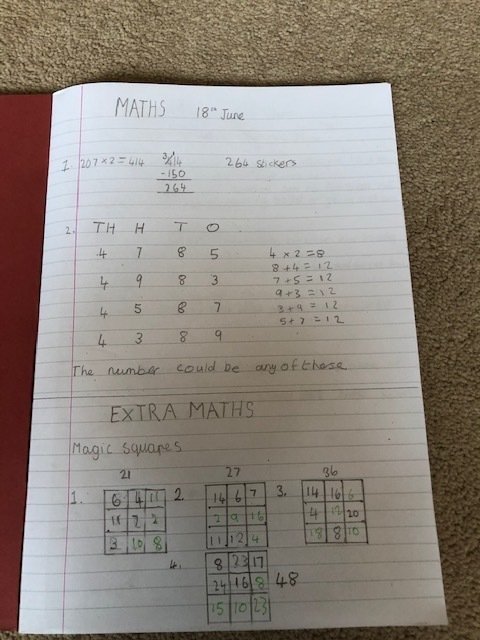 MATHS 18th June
1. 207 x 2 = 414 3/414 264 stickers
-150
264
2. TH H T O
4 7 8 5 4 x 2 = 8
8 + 4 = 12
4 9 8 3 7 + 5 = 12
9 + 3 = 12
4 5 8 7 3 + 9 = 12
5 + 7 = 12
4 3 8 9
The number could be any of these
EXTRA MATHS
Magic squares
21 27 36
1. 6 4 11 2. 14 6 7 3. 14 16 6
11 7 2 9 16 4 12 20
3 10 8 11 12 4 18 8 10
4. 8 23 17 48
24 16 8
15 10 23